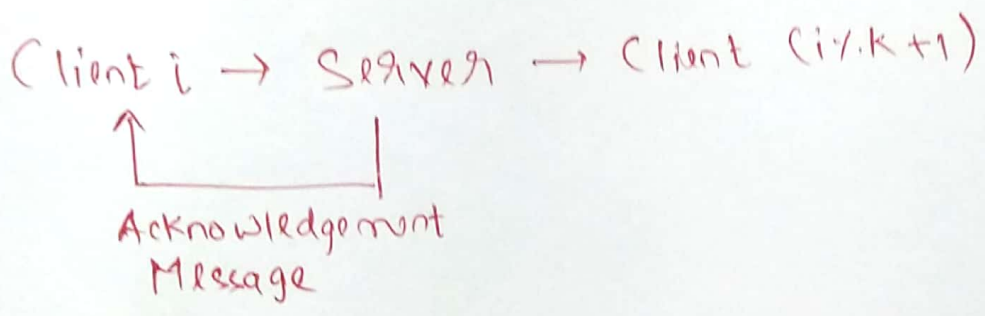 Client i → Server → Client (i%k+1)
Acknowledgement
Message